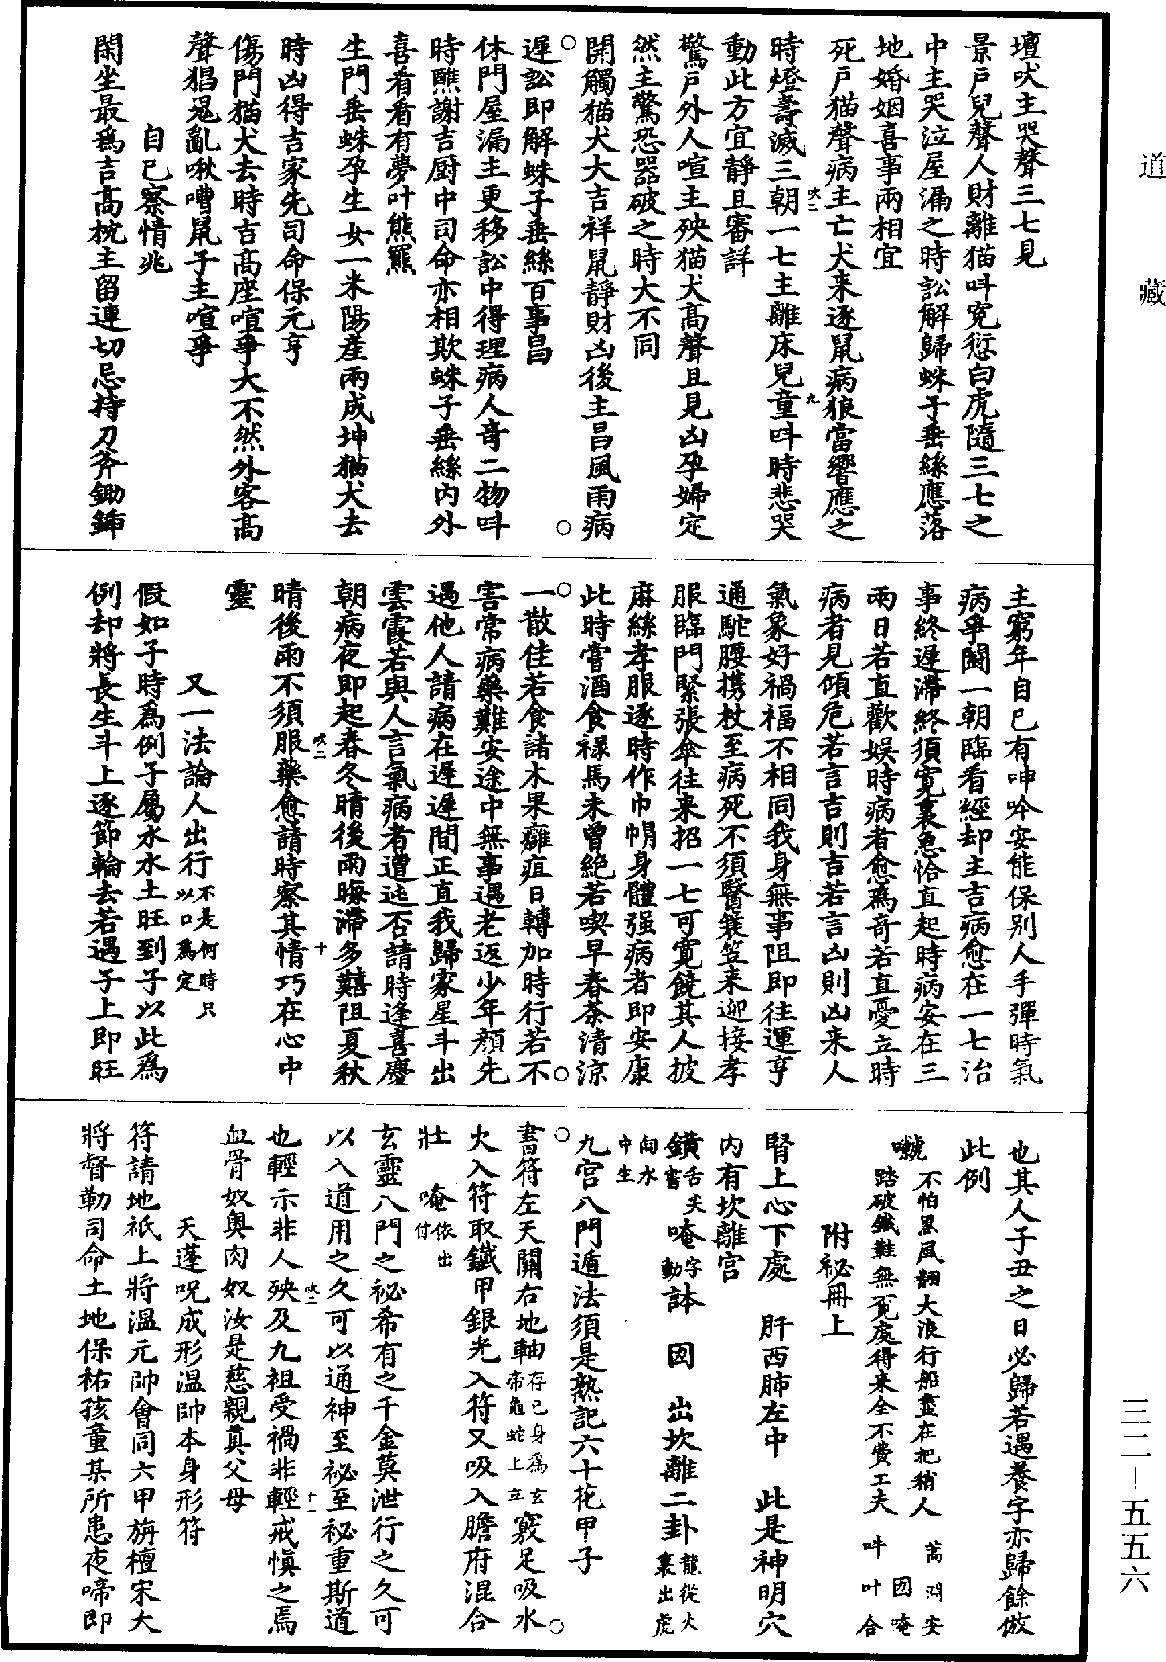 道藏
壇吠主哭聲三七見
景戶兒聲人財離猫呌寃愆白虎隨三七之
中主哭泣屋漏之時訟解歸蛛子垂絲應落
地婚姻喜事兩相宜
死戶猫聲病主亡犬来逐鼠病狼當響應之
時燈壽滅三朝一七主離床兒童呌時悲哭
動此方宜靜且審詳
驚戶外人喧主殃猫犬髙聲且見凶孕婦定
然主驚恐器破之時大不同
開觸猫犬大吉祥鼠靜財凶後主昌風雨病
遲訟即解蛛子垂絲百事昌
休門屋漏主更移訟中得理病人竒二物呌
時醮謝吉厨中司命亦相欺蛛子垂絲內外
喜看看有夢叶熊羆
生門垂蛛孕生女一米陽產兩成坤猫犬去
時凶得吉家先司命保元亨
傷門猫犬去時吉髙座喧爭大不然外客髙
聲猖鬼亂啾嘈鼠子主喧爭
自已察情兆
閑坐最爲吉髙枕主留連切忌持刀斧鋤鍤
主窮年自已有呻吟安能保别人手彈時氣
病爭鬭一朝臨看經却主吉病愈在一七治
事終遲滯終須寬裏急恰直起時病安在三
兩日若直歡娛時病者愈爲奇若直憂立時
病者見傾危若言吉則吉若言凶則凶来人
氣象好禍福不相同我身無事阻即往運亨
通駝腰携杖至病死不須醫簑笠来迎接孝
服臨門緊張傘往来招一七可寬饒其人披
麻絲孝服逐時作巾帽身體强病者即安康
此時嘗酒食禄馬未曾絶若喫早春茶清涼
一散佳若食諸木果癰疽日轉加時行若不
害常病藥難安途中無事遇老返少年顏先
過他人請病在遲遲間正直我歸家星斗出
雲霞若與人言氣病者遭迍否請時逢喜慶
朝病夜即起春冬晴後雨晦滯多囏阻夏秋
晴後雨不須服藥愈請時察其情巧在心中
靈
又一法論人出行不是何時只以口爲定
假如子時爲例子屬水水土旺到子以此爲
例却將長生斗上逐節輪去若遇子上即旺
也其人子丑之日必歸若遇養字亦歸餘倣
此例
不怕黑風翻大浪行船盡在把梢人
踏破鐵鞋無覓處得来全不費工夫
附祕冊上
腎上心下處 肝西肺左中 此是神明穴
內有坎離宮
唵字動 出坎離二卦龍從火裏出虎向水中生
九宮八門遁法須是熟記六十花甲子
書符左天關右地軸存已身爲玄帝龜蛇上立竅足吸水
火入符取鐵甲銀光入符又吸入膽府混合
壯 唵依出付
玄靈八門之祕希有之千金莫泄行之久可
以入道用之久可以通神至祕至祕重斯道
也輕示非人殃及九祖受禍非輕戒慎之焉
血骨奴與肉奴汝是慈親真父母
天蓬呪成形溫帥本身形符
符請地祇上將溫元帥會同六甲旃檀宋大
將督勒司命土地保祐孩童某所患夜啼即
三二—五五六